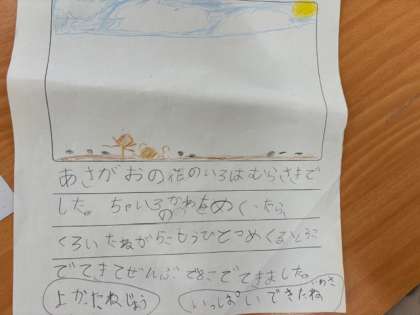 あさがおの花のいろはむらさきで
した。ちゃいろのかわをめくったら
くろいたねが もうひとつめくると
でてきてぜんぶ でてきました。
よかったねじょう
いっぱいできたね